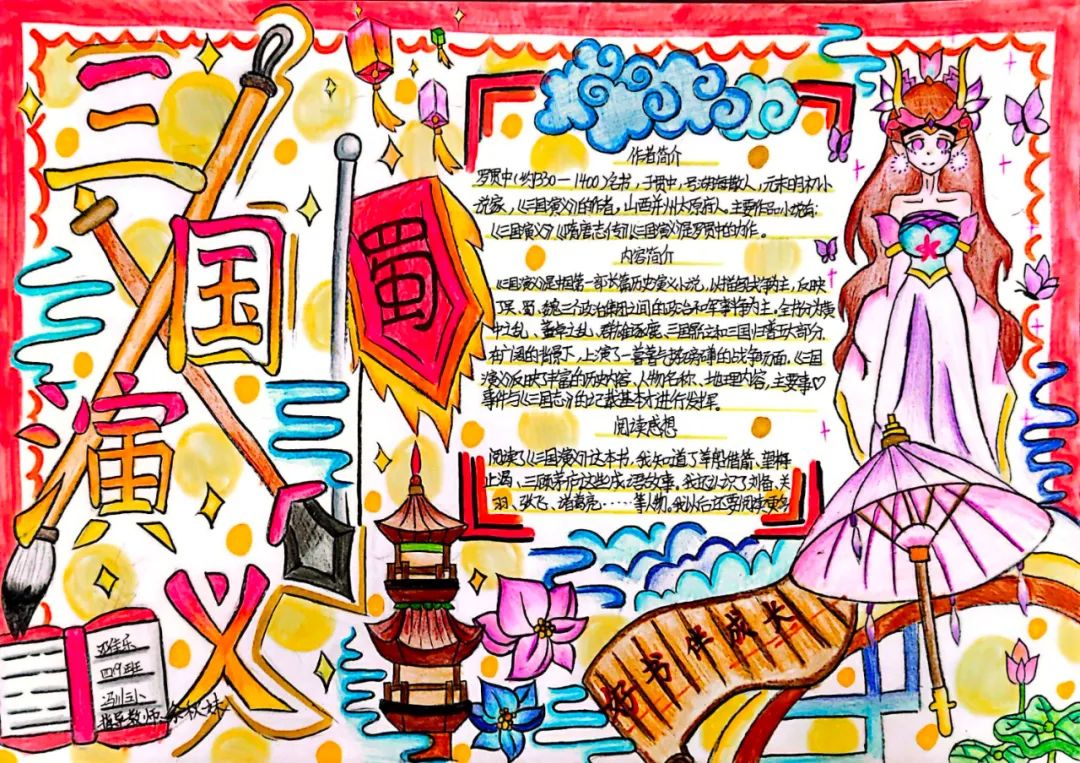 三国演义
蜀
作者简介
罗贯中(约1330—1400)名本,字贯中,号湖海散人,元末明初小
说家,《三国演义》的作者,山西并州太原府人。主要作品小说有:
《三国演义》《隋唐志传》《三国演义》是罗贯中的力作。
内容简介
《三国演义》是中国第一部长篇历史演义小说,以描写战争为主,反映
了吴、蜀、魏三个政治集团之间的政治和军事斗争为主,全书分为黄
巾之乱、董卓之乱、群雄逐鹿、三国鼎立和三国归晋五大部分,
在广阔的背景下,上演了一幕幕气势磅礴的战争场面,《三国
演义》反映了丰富的历史内容、人物名称、地理内容,主要事
事件与《三国志》的记载基本才进行发挥。
阅读感想
阅读了《三国演义》这本书,我知道了草船借箭、望梅
止渴、三顾茅庐这些成语故事,我还认识了刘备、关
羽、张飞、诸葛亮……等人物。我以后还要阅读更多
好书伴成长
佳乐
四9班
冯川三小
指导教师